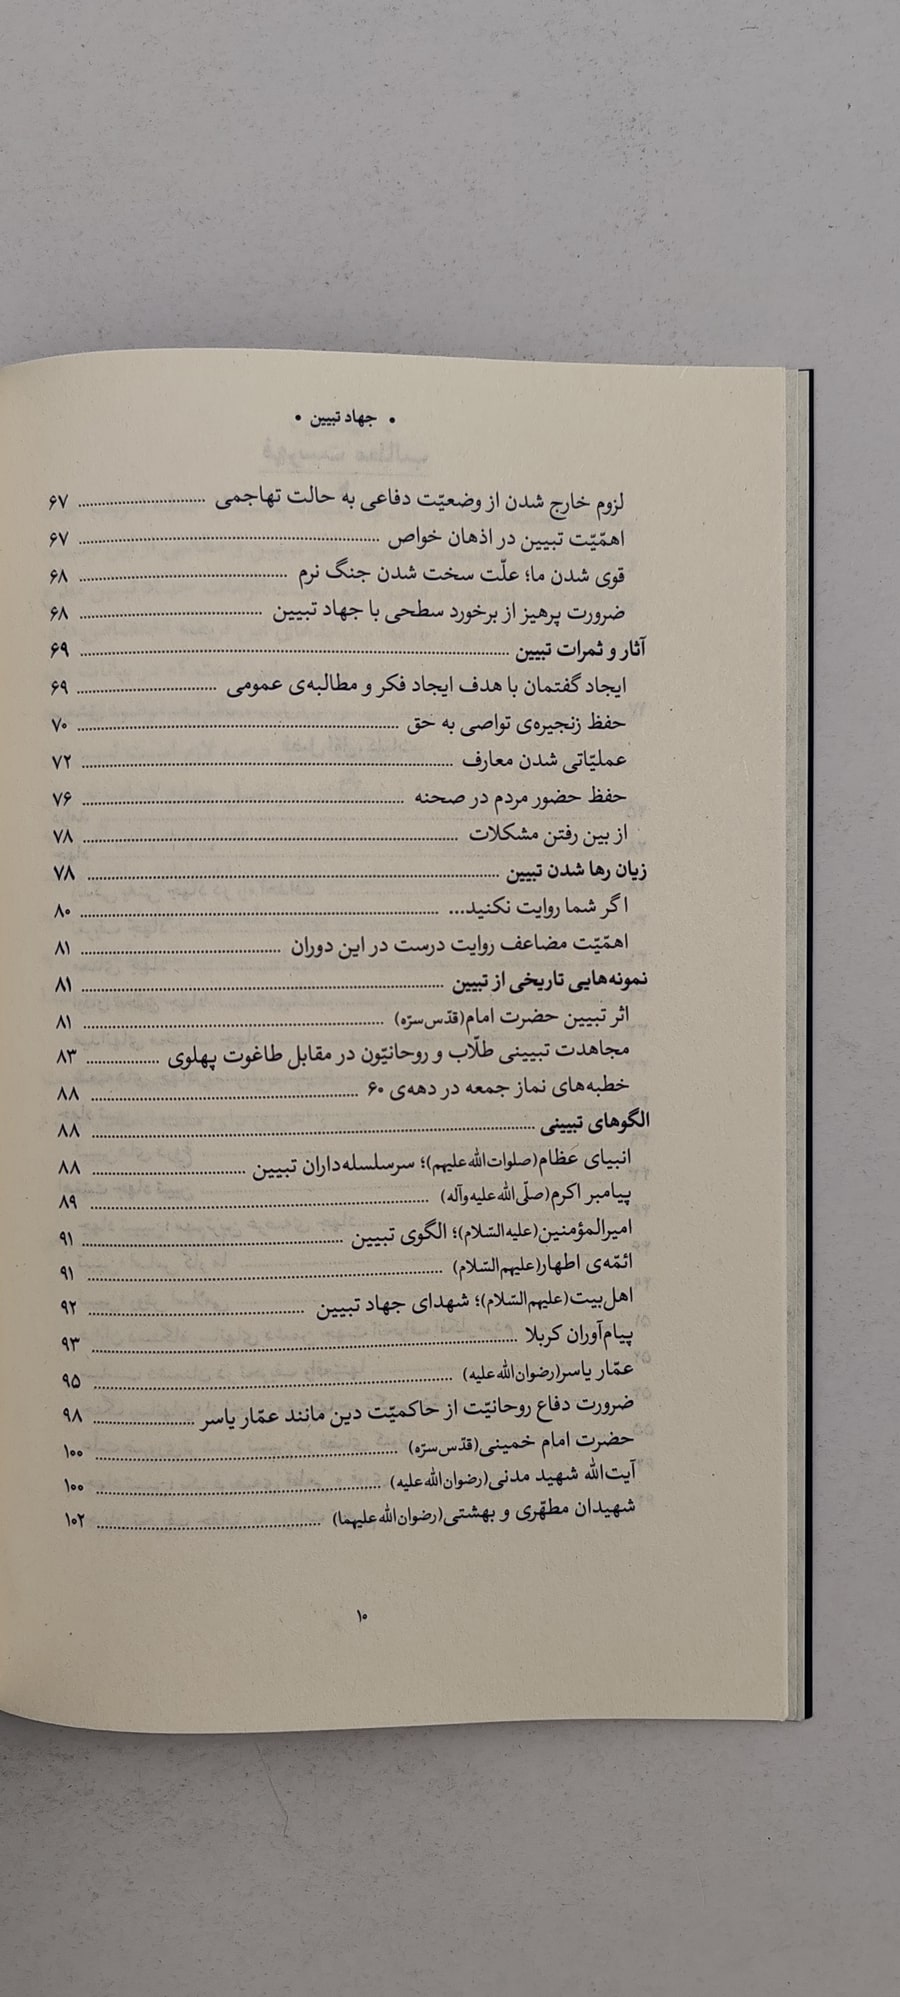 • جهاد تبیین •
لزوم خارج شدن از وضعیّت دفاعی به حالت تهاجمی ........ ۶۷
اهمّیّت تبیین در اذهان خواص ........ ۶۷
قوی شدن ما؛ علّت سخت شدن جنگ نرم ........ ۶۸
ضرورت پرهیز از برخورد سطحی با جهاد تبیین ........ ۶۸
آثار و ثمرات تبیین ........ ۶۹
ایجاد گفتمان با هدف ایجاد فکر و مطالبه‌ی عمومی ........ ۶۹
حفظ زنجیره‌ی تواصی به حق ........ ۷۰
عملیّاتی شدن معارف ........ ۷۲
حفظ حضور مردم در صحنه ........ ۷۶
از بین رفتن مشکلات ........ ۷۸
زیان رها شدن تبیین ........ ۷۸
اگر شما روایت نکنید... ........ ۸۰
اهمّیّت مضاعف روایت درست در این دوران ........ ۸۱
نمونه‌هایی تاریخی از تبیین ........ ۸۱
اثر تبیین حضرت امام(قدّس سرّه) ........ ۸۱
مجاهدت تبیینی طلّاب و روحانیّون در مقابل طاغوت پهلوی ........ ۸۳
خطبه‌های نماز جمعه در دهه‌ی ۶۰ ........ ۸۸
الگوهای تبیینی ........ ۸۸
انبیای عظام(صلوات‌الله‌علیهم)؛ سرسلسله‌داران تبیین ........ ۸۸
پیامبر اکرم(صلّی‌الله‌علیه‌وآله) ........ ۸۹
امیرالمؤمنین(علیه‌السّلام)؛ الگوی تبیین ........ ۹۱
ائمّه‌ی اطهار(علیهم‌السّلام) ........ ۹۱
اهل‌بیت(علیهم‌السّلام)؛ شهدای جهاد تبیین ........ ۹۲
پیام‌آوران کربلا ........ ۹۳
عمّار یاسر(رضوان‌الله‌علیه) ........ ۹۵
ضرورت دفاع روحانیّت از حاکمیّت دین مانند عمّار یاسر ........ ۹۸
حضرت امام خمینی(قدّس سرّه) ........ ۱۰۰
آیت‌الله شهید مدنی(رضوان‌الله‌علیه) ........ ۱۰۰
شهیدان مطهّری و بهشتی(رضوان‌الله‌علیهما) ........ ۱۰۲
۱۰